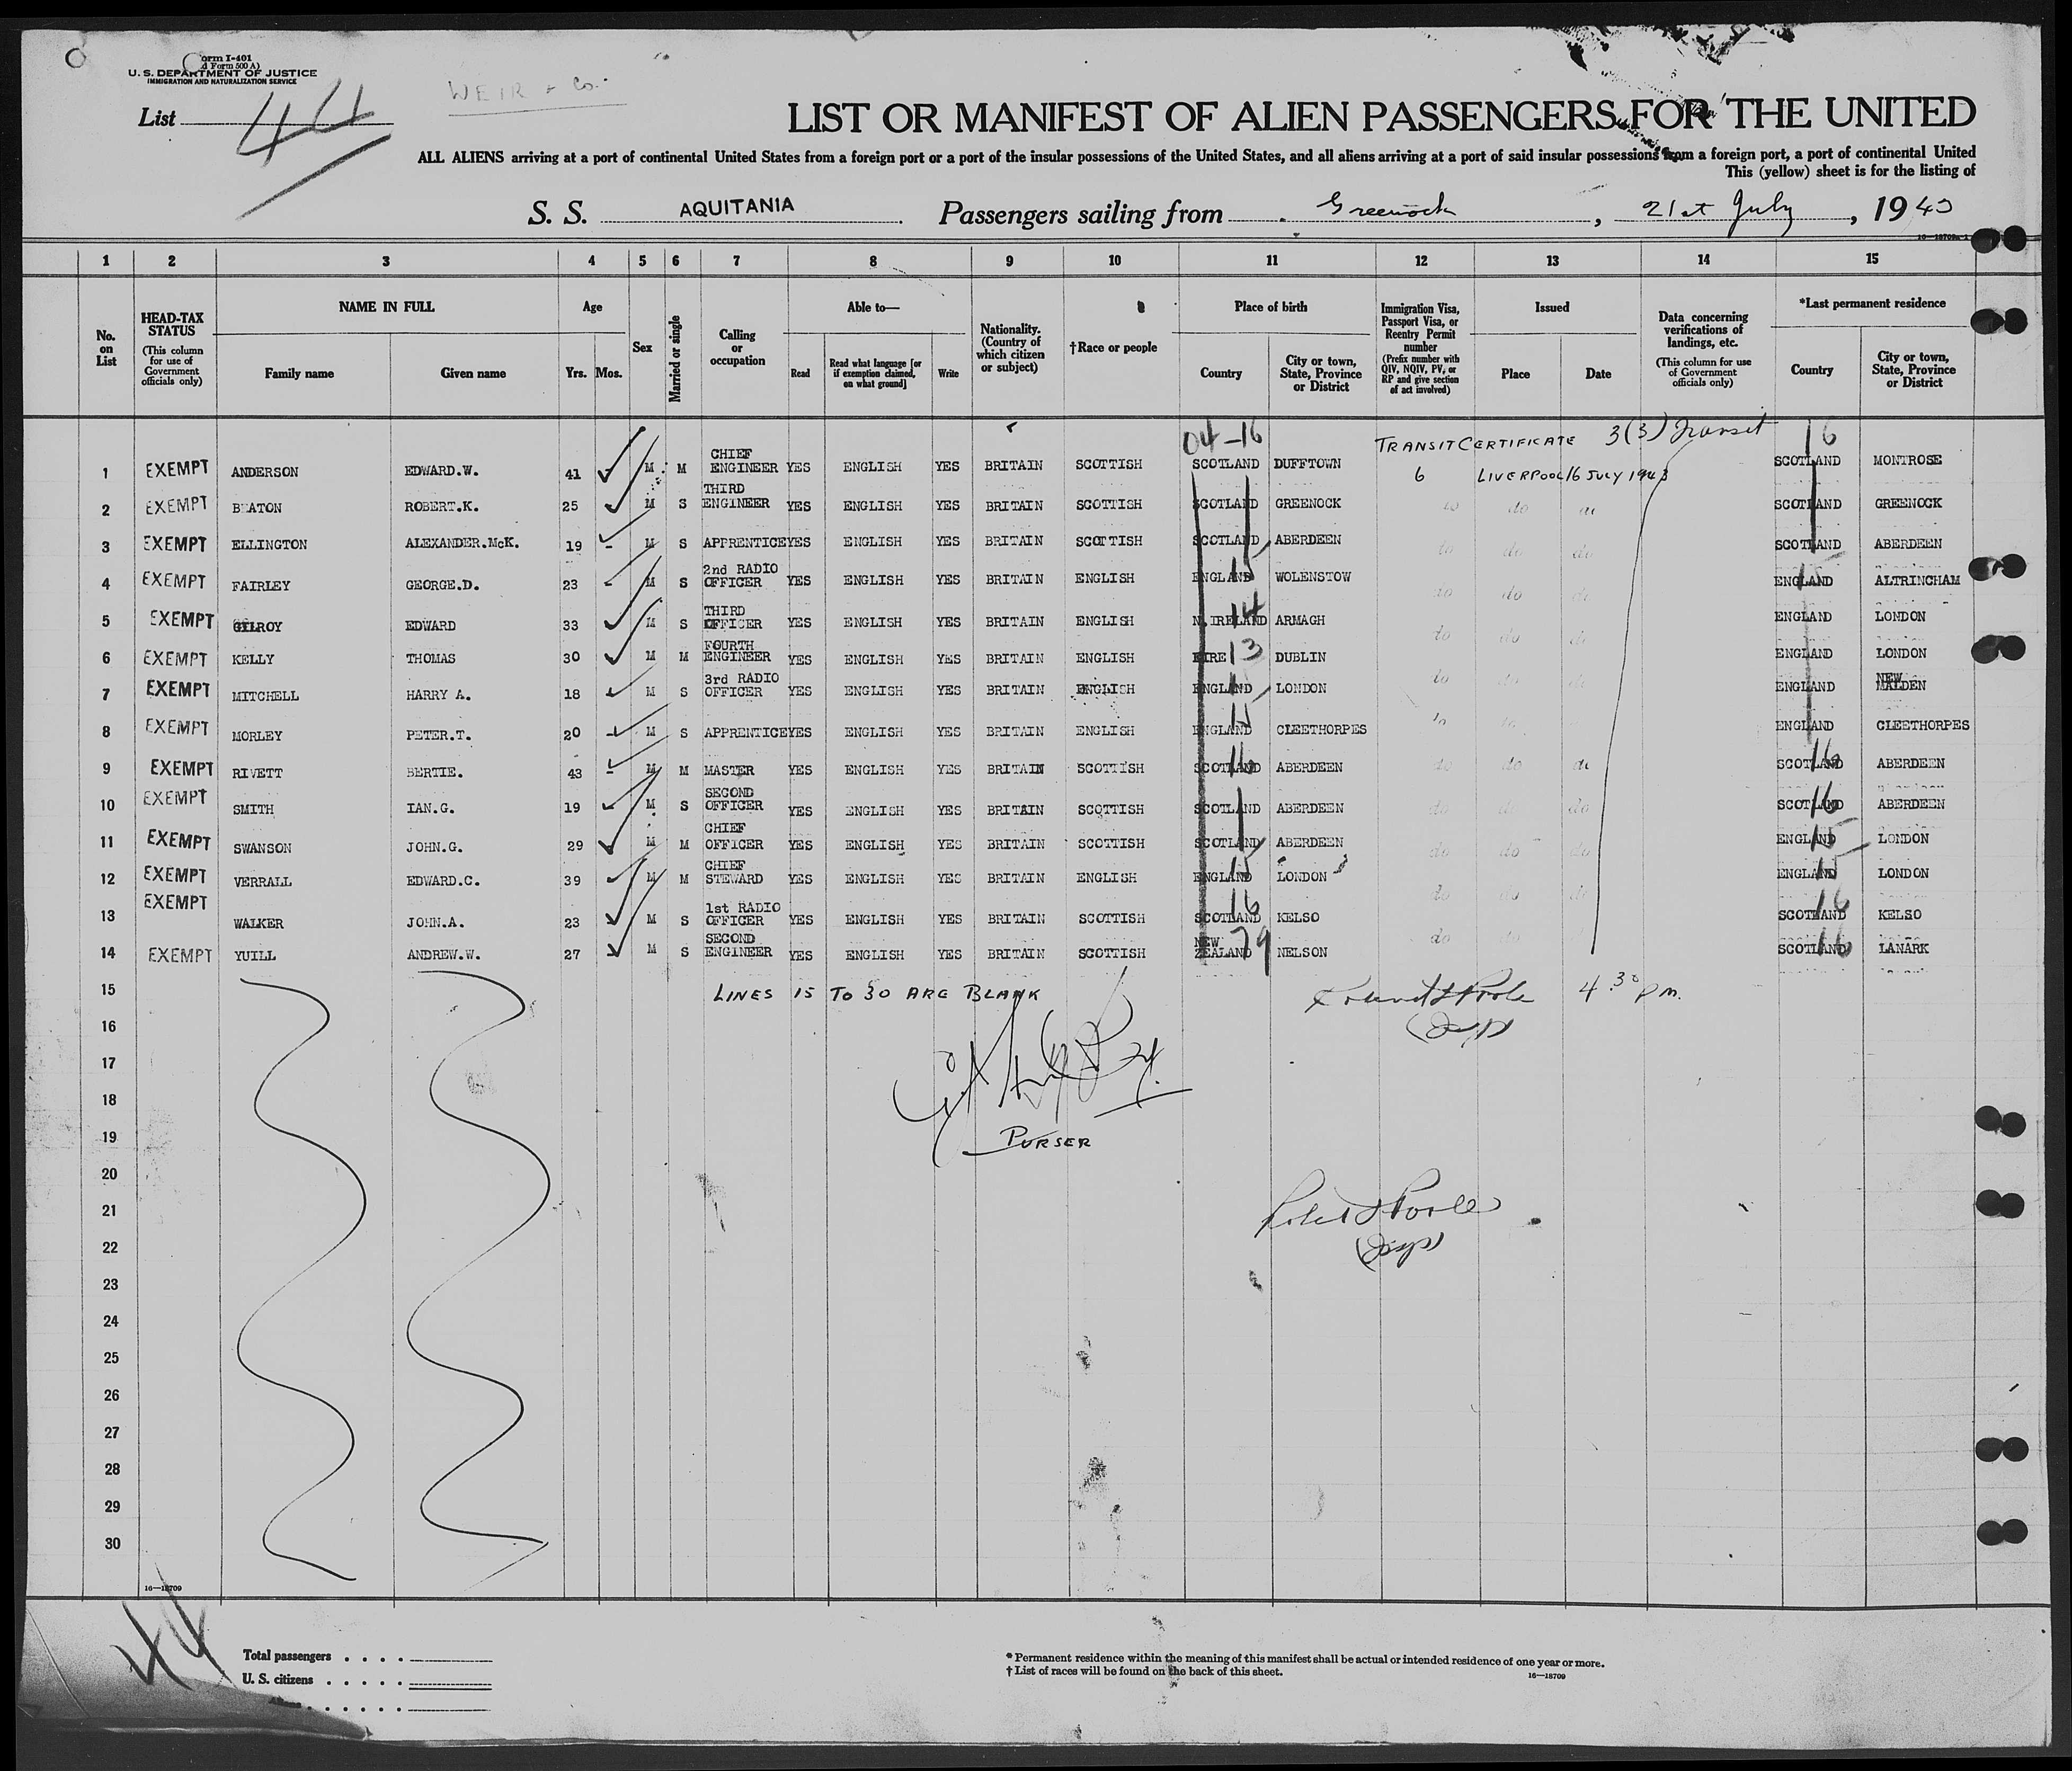 Form I-401
U. S. DEPARTMENT OF JUSTICE
IMMIGRATION AND NATURALIZATION SERVICE
WEIR & Co.
List 44
LIST OR MANIFEST OF ALIEN PASSENGERS FOR THE UNITED
ALL ALIENS arriving at a port of continental United States from a foreign port or a port of the insular possessions of the United States, and all aliens arriving at a port of said insular possessions from a foreign port, a port of continental United
This (yellow) sheet is for the listing of
S. S. AQUITANIA Passengers sailing from Greenock, 21st July, 1943
1 2 3 4 5 6 7 8 9 10 11 12 13 14 15
No. on List
HEAD-TAX STATUS (This column for use of Government officials only)
NAME IN FULL Family name Given name
Age Yrs. Mos.
Sex
Married or single
Calling or occupation
Able to— Read Read what language [or if exemption claimed, on what ground] Write
Nationality. (Country of which citizen or subject)
†Race or people
Place of birth Country City or town, State, Province or District
Immigration Visa, Passport Visa, or Reentry Permit number (Prefix number with QIV, NQIV, PV, or RP and give section of act involved)
Issued Place Date
Data concerning verifications of landings, etc. (This column for use of Government officials only)
*Last permanent residence Country City or town, State, Province or District
04-16 TRANSIT CERTIFICATE 3(3) Transit 16
1 EXEMPT ANDERSON EDWARD.W. 41 M M CHIEF ENGINEER YES ENGLISH YES BRITAIN SCOTTISH SCOTLAND DUFFTOWN 6 LIVERPOOL 16 JULY 1943 SCOTLAND MONTROSE
2 EXEMPT BEATON ROBERT.K. 25 M S THIRD ENGINEER YES ENGLISH YES BRITAIN SCOTTISH SCOTLAND GREENOCK do do do SCOTLAND GREENOCK
3 EXEMPT ELLINGTON ALEXANDER.McK. 19 - M S APPRENTICE YES ENGLISH YES BRITAIN SCOTTISH SCOTLAND ABERDEEN do do do SCOTLAND ABERDEEN
4 EXEMPT FAIRLEY GEORGE.D. 23 - M S 2nd RADIO OFFICER YES ENGLISH YES BRITAIN ENGLISH ENGLAND 15 WOLENSTOW do do do ENGLAND 15 ALTRINCHAM
5 EXEMPT GILROY EDWARD 33 M S THIRD OFFICER YES ENGLISH YES BRITAIN ENGLISH N.IRELAND 14 ARMAGH do do do ENGLAND LONDON
6 EXEMPT KELLY THOMAS 30 M M FOURTH ENGINEER YES ENGLISH YES BRITAIN ENGLISH EIRE 13 DUBLIN do do do ENGLAND LONDON
7 EXEMPT MITCHELL HARRY A. 18 M S 3rd RADIO OFFICER YES ENGLISH YES BRITAIN ENGLISH ENGLAND 15 LONDON do do do ENGLAND NEW MALDEN
8 EXEMPT MORLEY PETER.T. 20 M S APPRENTICE YES ENGLISH YES BRITAIN ENGLISH ENGLAND 15 CLEETHORPES do do ENGLAND CLEETHORPES
9 EXEMPT RIVETT BERTIE. 43 - M M MASTER YES ENGLISH YES BRITAIN SCOTTISH SCOTLAND 16 ABERDEEN do do do SCOTLAND 16 ABERDEEN
10 EXEMPT SMITH IAN.G. 19 M S SECOND OFFICER YES ENGLISH YES BRITAIN SCOTTISH SCOTLAND ABERDEEN do do do SCOTLAND 16 ABERDEEN
11 EXEMPT SWANSON JOHN.G. 29 M M CHIEF OFFICER YES ENGLISH YES BRITAIN SCOTTISH SCOTLAND ABERDEEN do do do ENGLAND 15 LONDON
12 EXEMPT VERRALL EDWARD.C. 39 M M CHIEF STEWARD YES ENGLISH YES BRITAIN ENGLISH ENGLAND 15 LONDON do do do ENGLAND 15 LONDON
13 EXEMPT WALKER JOHN.A. 23 M S 1st RADIO OFFICER YES ENGLISH YES BRITAIN SCOTTISH SCOTLAND 16 KELSO do do do SCOTLAND 16 KELSO
14 EXEMPT YUILL ANDREW.W. 27 M S SECOND ENGINEER YES ENGLISH YES BRITAIN SCOTTISH NEW ZEALAND 79 NELSON do do SCOTLAND 16 LANARK
15 LINES 15 TO 30 ARE BLANK 4 30 P M.
16
17
18
19 PURSER
20
21
22
23
24
25
26
27
28
29
30
16—18709
44
Total passengers
U. S. citizens
* Permanent residence within the meaning of this manifest shall be actual or intended residence of one year or more.
† List of races will be found on the back of this sheet.
16—18709